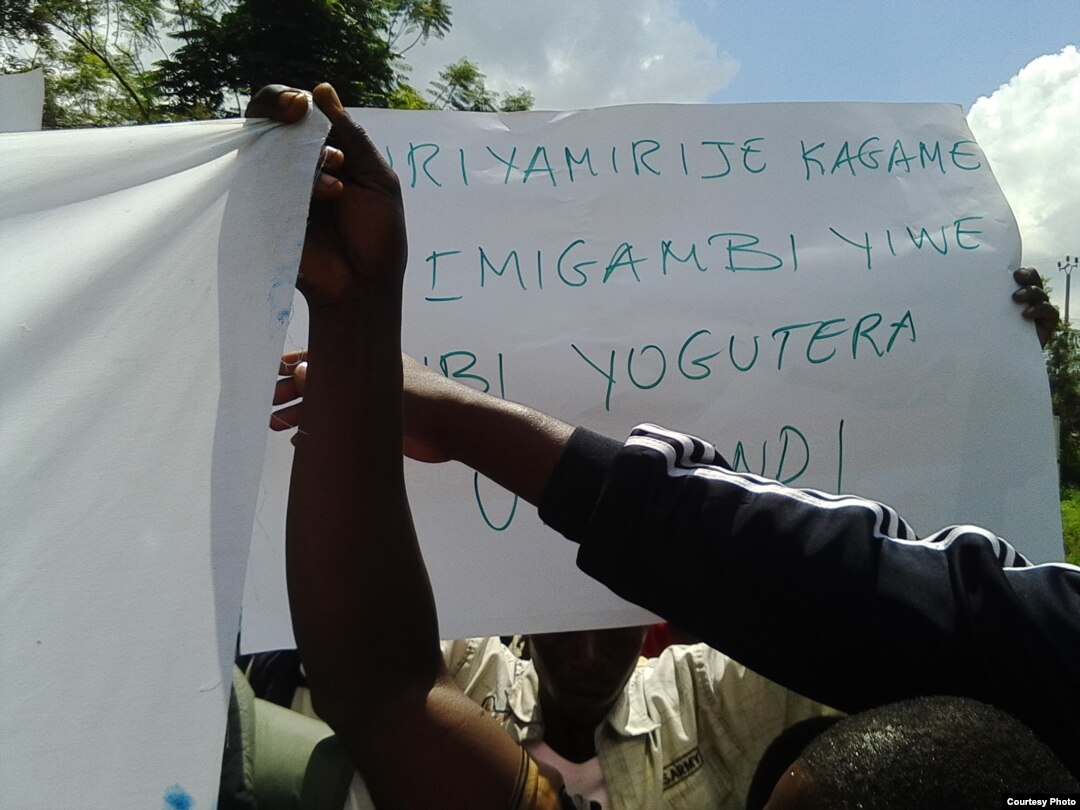 URIYAMIRIJE KAGAME
IMIGAMBI YIWE
BI YOGUTERA
U NDI
ARMY
Courtesy Photo